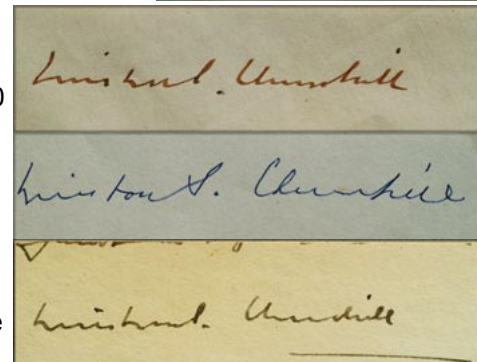 0
Winston S. Churchill
Winston S. Churchill
e
Winston S. Churchill